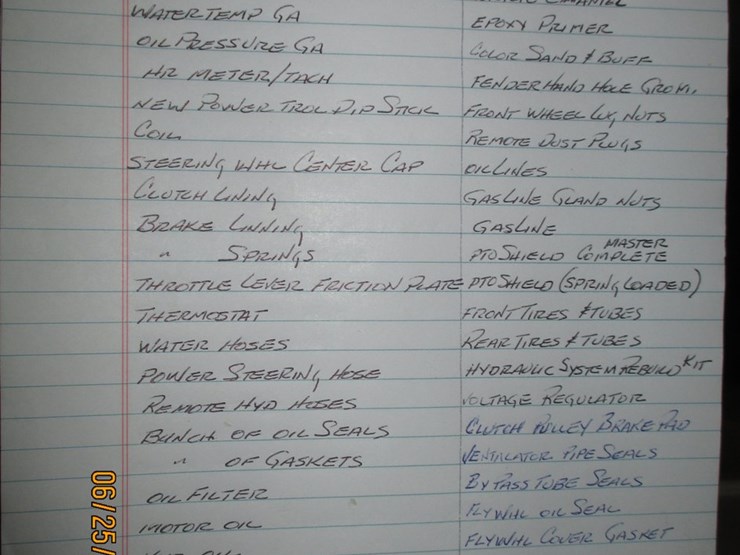 WATER TEMP GA
OIL PRESSURE GA
HR METER/TACH
NEW POWER TROL DIP STICK
COIL
STEERING WHL CENTER CAP
CLUTCH LINING
BRAKE LINNING
" SPRINGS
THROTTLE LEVER FRICTION PLATE
THERMOSTAT
WATER HOSES
POWER STEERING HOSE
REMOTE HYD HOSES
BUNCH OF OIL SEALS
" OF GASKETS
OIL FILTER
MOTOR OIL
EPOXY PRIMER
COLOR SAND & BUFF
FENDER HAND HOLE GROM.
FRONT WHEEL LUG NUTS
REMOTE DUST PLUGS
OIL LINES
GASLINE GLAND NUTS
GASLINE
PTO SHIELD COMPLETE MASTER
PTO SHIELD (SPRING LOADED)
FRONT TIRES & TUBES
REAR TIRES & TUBES
HYDRAULIC SYSTEM REBUILD KIT
VOLTAGE REGULATOR
CLUTCH PULLEY BRAKE PAD
VENTALATOR PIPE SEALS
BYPASS TUBE SEALS
FLYWHL OIL SEAL
FLYWHL COVER GASKET
06/25/